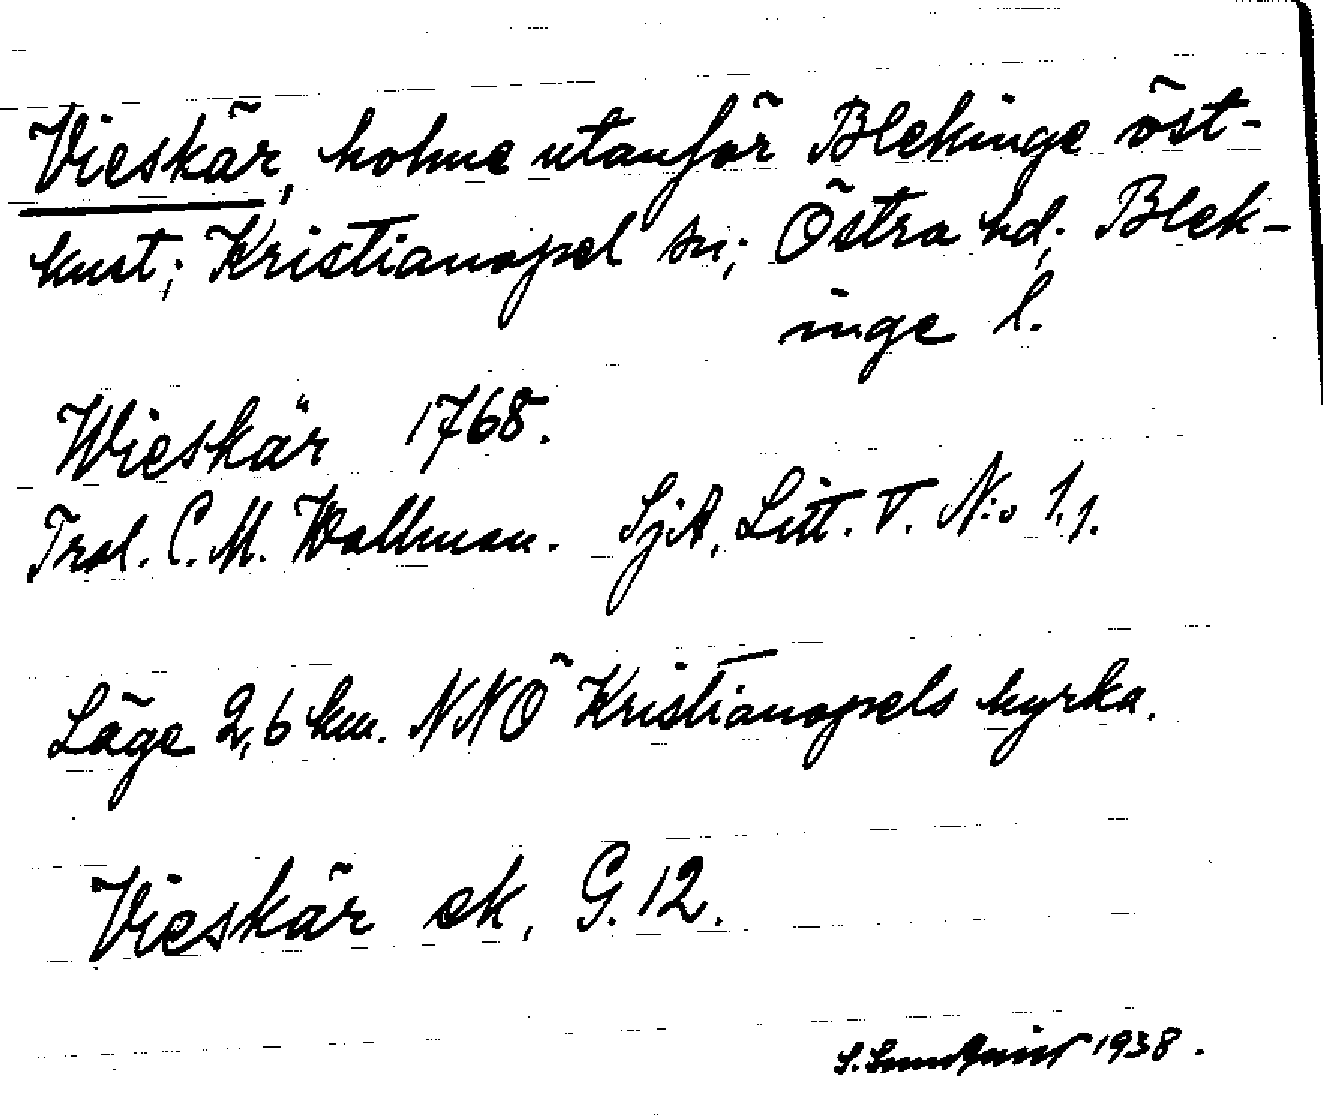 Vieskär, holme utanför Blekinge öst-
kust; Kristianopel sn; Östra hd; Blek-
inge l.
Wieskär 1768.
Trol. C. M. Wollman. SjA, Litt. V. N:o 1,1.
Läge 2,6 km. NNÖ Kristianopels kyrka.
Vieskär ek, G. 12.
S. Sundquist 1938.